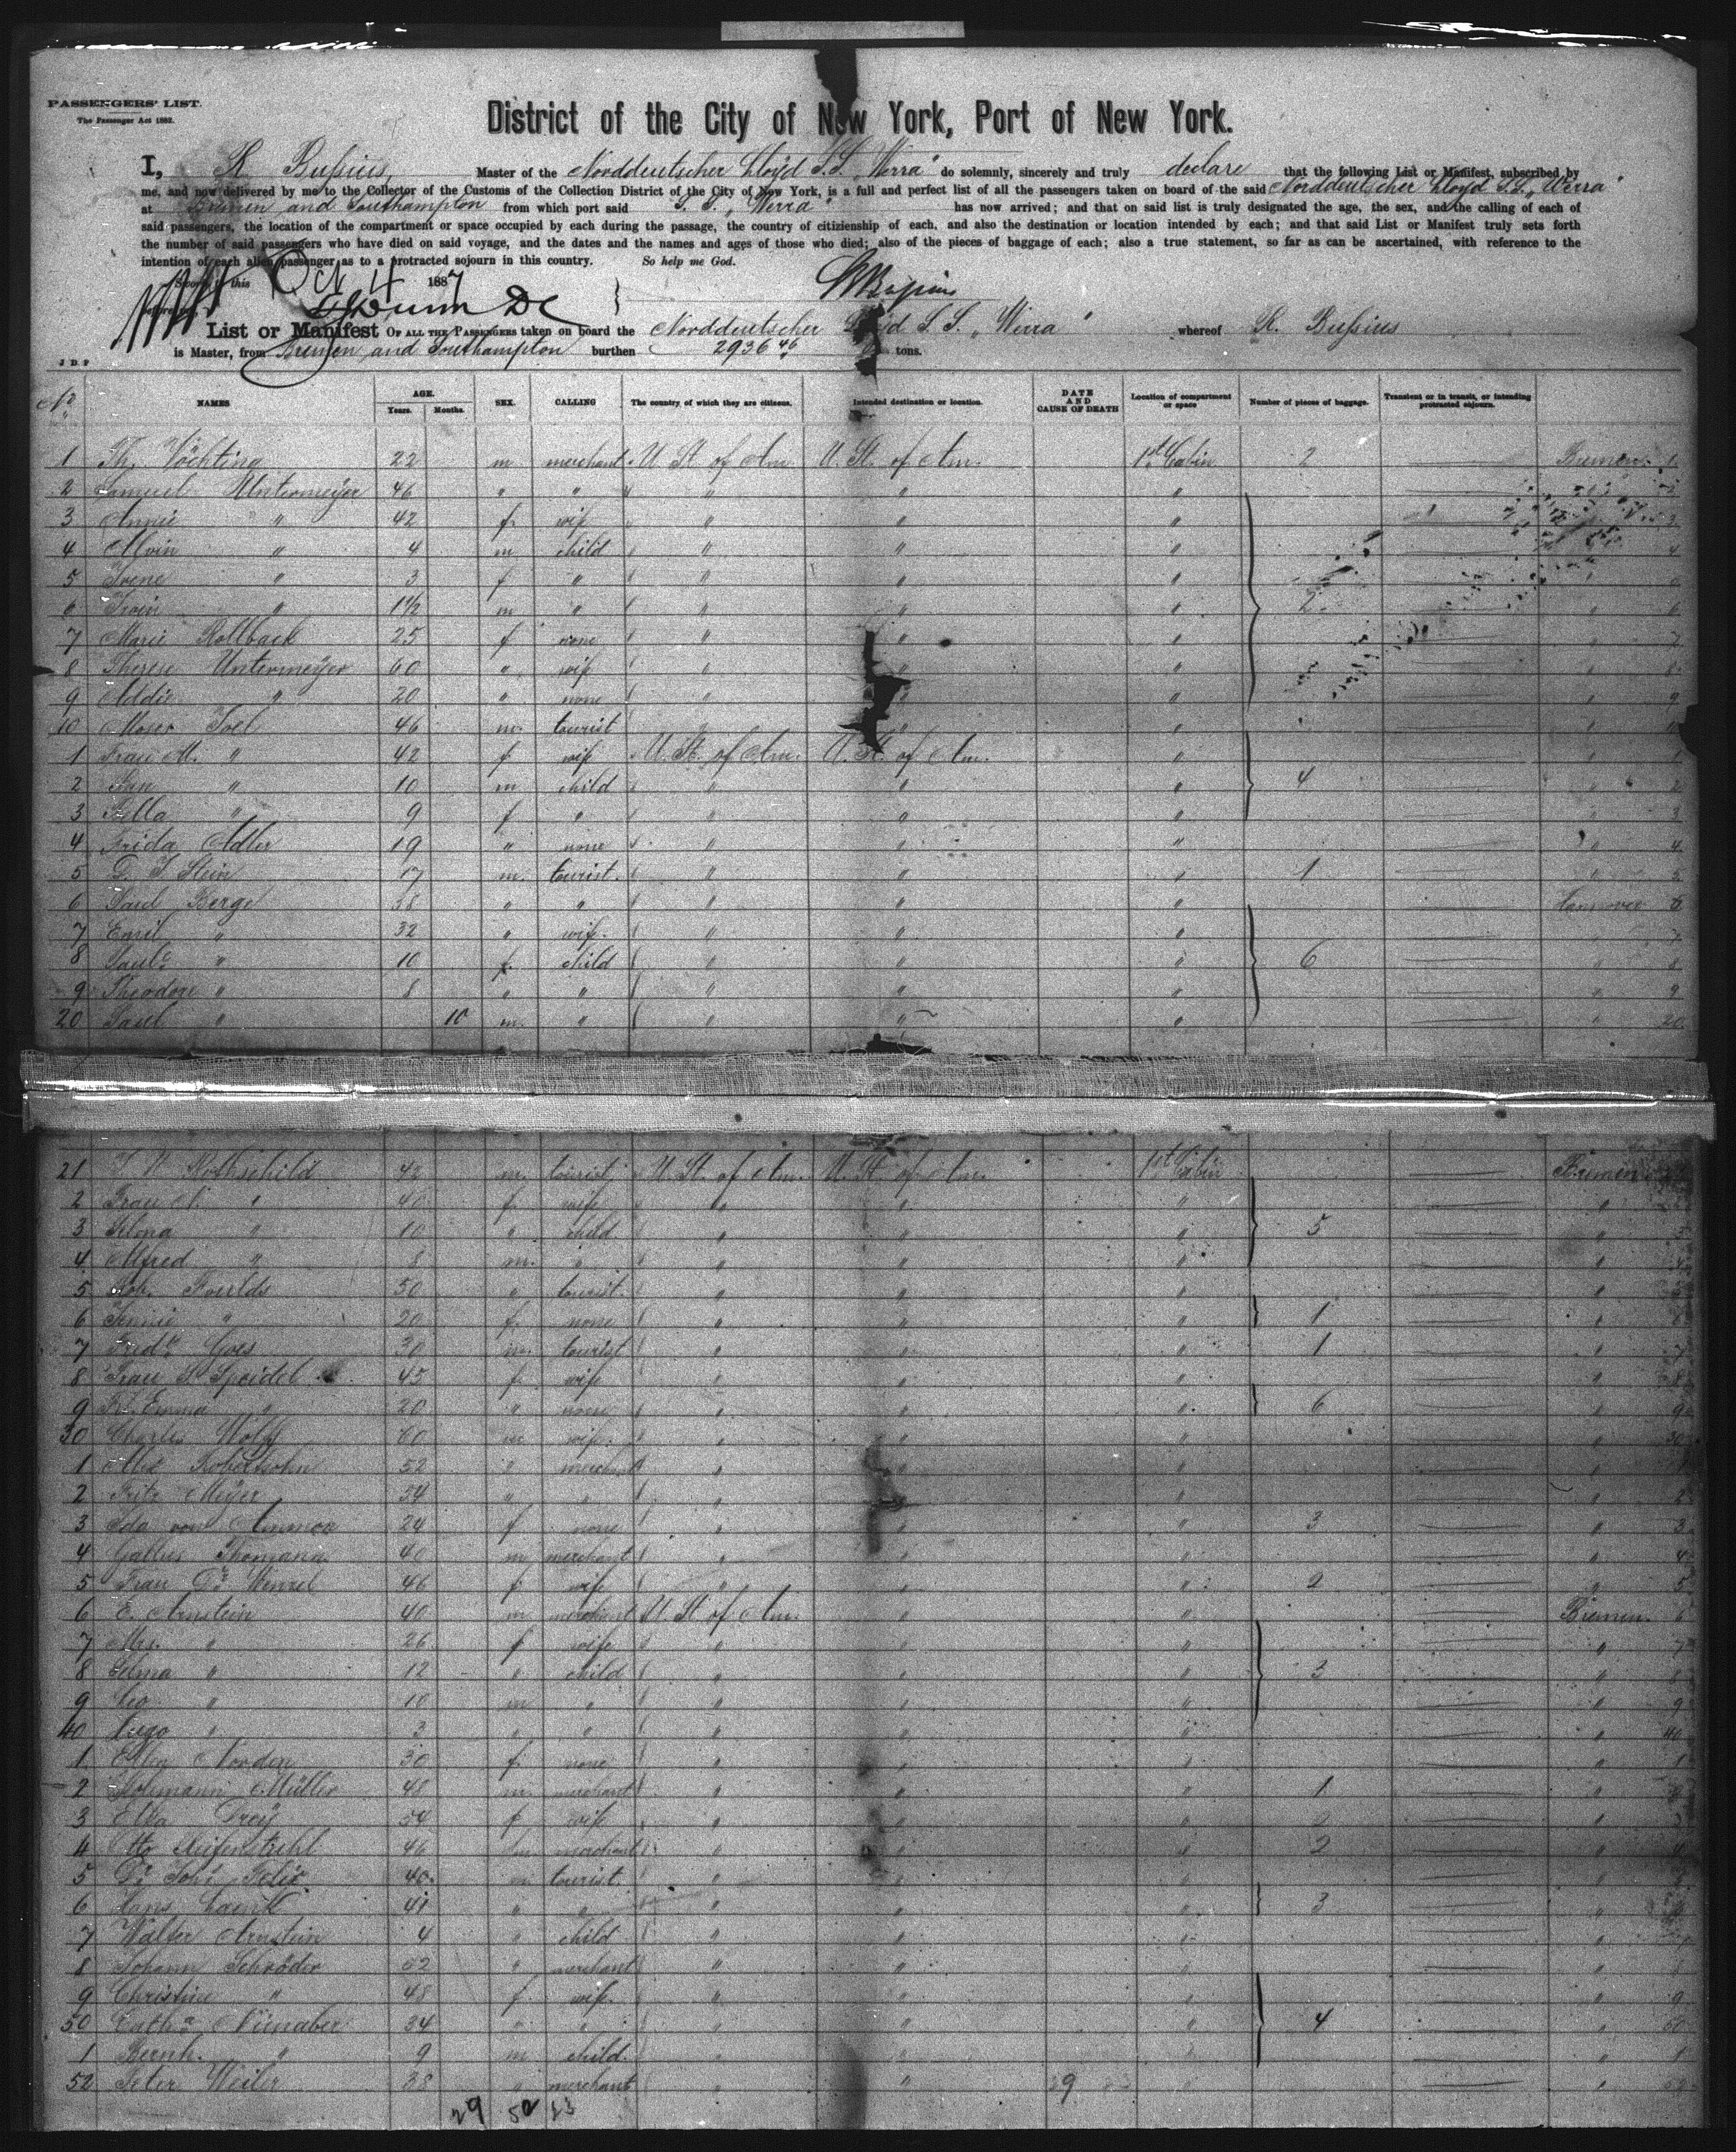 PASSENGERS' LIST.
The Passenger Act 1882.
District of the City of New York, Port of New York.
I, R. Bussius, Master of the Norddeutscher Lloyd S.S. „Werra" do solemnly, sincerely and truly declare that the following List or Manifest, subscribed by
me, and now delivered by me to the Collector of the Customs of the Collection District of the City of New York, is a full and perfect list of all the passengers taken on board of the said Norddeutscher Lloyd S.S. „Werra"
at Bremen and Southampton from which port said S.S. „Werra" has now arrived; and that on said list is truly designated the age, the sex, and the calling of each of
said passengers, the location of the compartment or space occupied by each during the passage, the country of citizienship of each, and also the destination or location intended by each; and that said List or Manifest truly sets forth
the number of said passengers who have died on said voyage, and the dates and the names and ages of those who died; also of the pieces of baggage of each; also a true statement, so far as can be ascertained, with reference to the
intention of each alien passenger as to a protracted sojourn in this country. So help me God.
Sworn this Oct 4 1887
List or Manifest OF ALL THE PASSENGERS taken on board the Norddeutscher Lloyd S.S. „Werra" whereof R. Bussius
is Master, from Bremen and Southampton burthen 2936 46 tons.
J D P
No NAMES AGE. Years. Months. SEX. CALLING The country, of which they are citizens. Intended destination or location. DATE AND CAUSE OF DEATH Location of compartment or space Number of pieces of baggage. Transient or in transit, or intending protracted sojourn.
1 Th. Vöchting 22 m merchant U. St. of Am U. St. of Am. 1st Cabin 2 Bremen. 1
2 Samuel Untermeyer 46 " " " " " 2
3 Annie " 42 f. wife " " " 3
4 Alvin " 4 m child " " " 4
5 Irene " 3 f " " " "
6 Irvin " 1 1/2 m " " " " 2 " 6
7 Marie Rollback 25 f none " " " " 7
8 Therese Untermeyer 60 " wife " " " " 8
9 Addie " 20 " none " " " " 9
10 Moses Joel 46 m. tourist " " "
1 Frau M. " 42 f wife U. St. of Am. U. St. of Am. " " 1
2 " 10 m child " " " 4 " 2
3 Bella " 9 f " " " " " 3
4 Frida Adler 19 " none " " " " 4
5 D. J. Stein 17 m. tourist. " " " 1 " 5
6 Paul Berge " " " " " Hannover 6
7 Emil " 32 " wife. " " " " 7
8 " 10 f. child " " " 6 " 8
9 Theodore " 8 " " " " " " 9
20 Paul " 10 m. " " " " " 20
21 Rothschild 42 m. tourist U. St. of Am. U. St. of Am. 1st Cabin Bremen
2 Frau " 40 f. wife " " " "
3 " 10 " child " " " 5 " 3
4 Alfred " 8 m. " " " " " 4
5 Rob. Foulds 50 " tourist. " " " "
6 Jennie " 20 f. none " " " 1 "
7 Fredk. Goes 30 m. tourist " " " 1 " 7
8 Frau Speidel 45 f. wife " " " " 8
9 Emma " 20 " none " " " 6 " 9
30 Charles Wolff 60 m wife. " " " " 30
1 Robertsohn 52 " merchant " " " "
2 Fritz Meyer 34 " " " " " " 2
3 Ida von Ammon 24 f none " " " 3 " 3
4 Gallus Thomann 40 m merchant " " " " 4
5 Frau Dr. Wenzel 46 f. wife " " " 2 " 5
6 E. Arnstein 40 m merchant U. St. of Am. " " Bremen. 6
7 Mrs. " 26 f wife " " " " 7
8 Selma " 12 " child " " " 3 " 8
9 Leo " 10 m " " " " " 9
40 Hugo " 3 " " " " " " 40
1 Norden 30 f. none " " " " 1
2 Müller 48 m. merchant " " " 1 "
3 Elka 54 f wife " " " "
4 Otto Reifenstuhl 46 m merchant " " " 2 " 4
5 Dr. Joh. Felix 40. m tourist. " " " "
6 Hans 41 " " " " " 3 "
7 Walter Arnstein 4 " child " " " "
8 Johann Schröder 52 " merchant " " " "
9 Christine " 48 f. wife. " " " " 9
50 Cath. Nienaber 34 " " " " " 4 " 50
1 Bernh. " 9 m child. " " " " 1
52 Peter Weiler 38 " merchant " " 9 " "
29 50 23